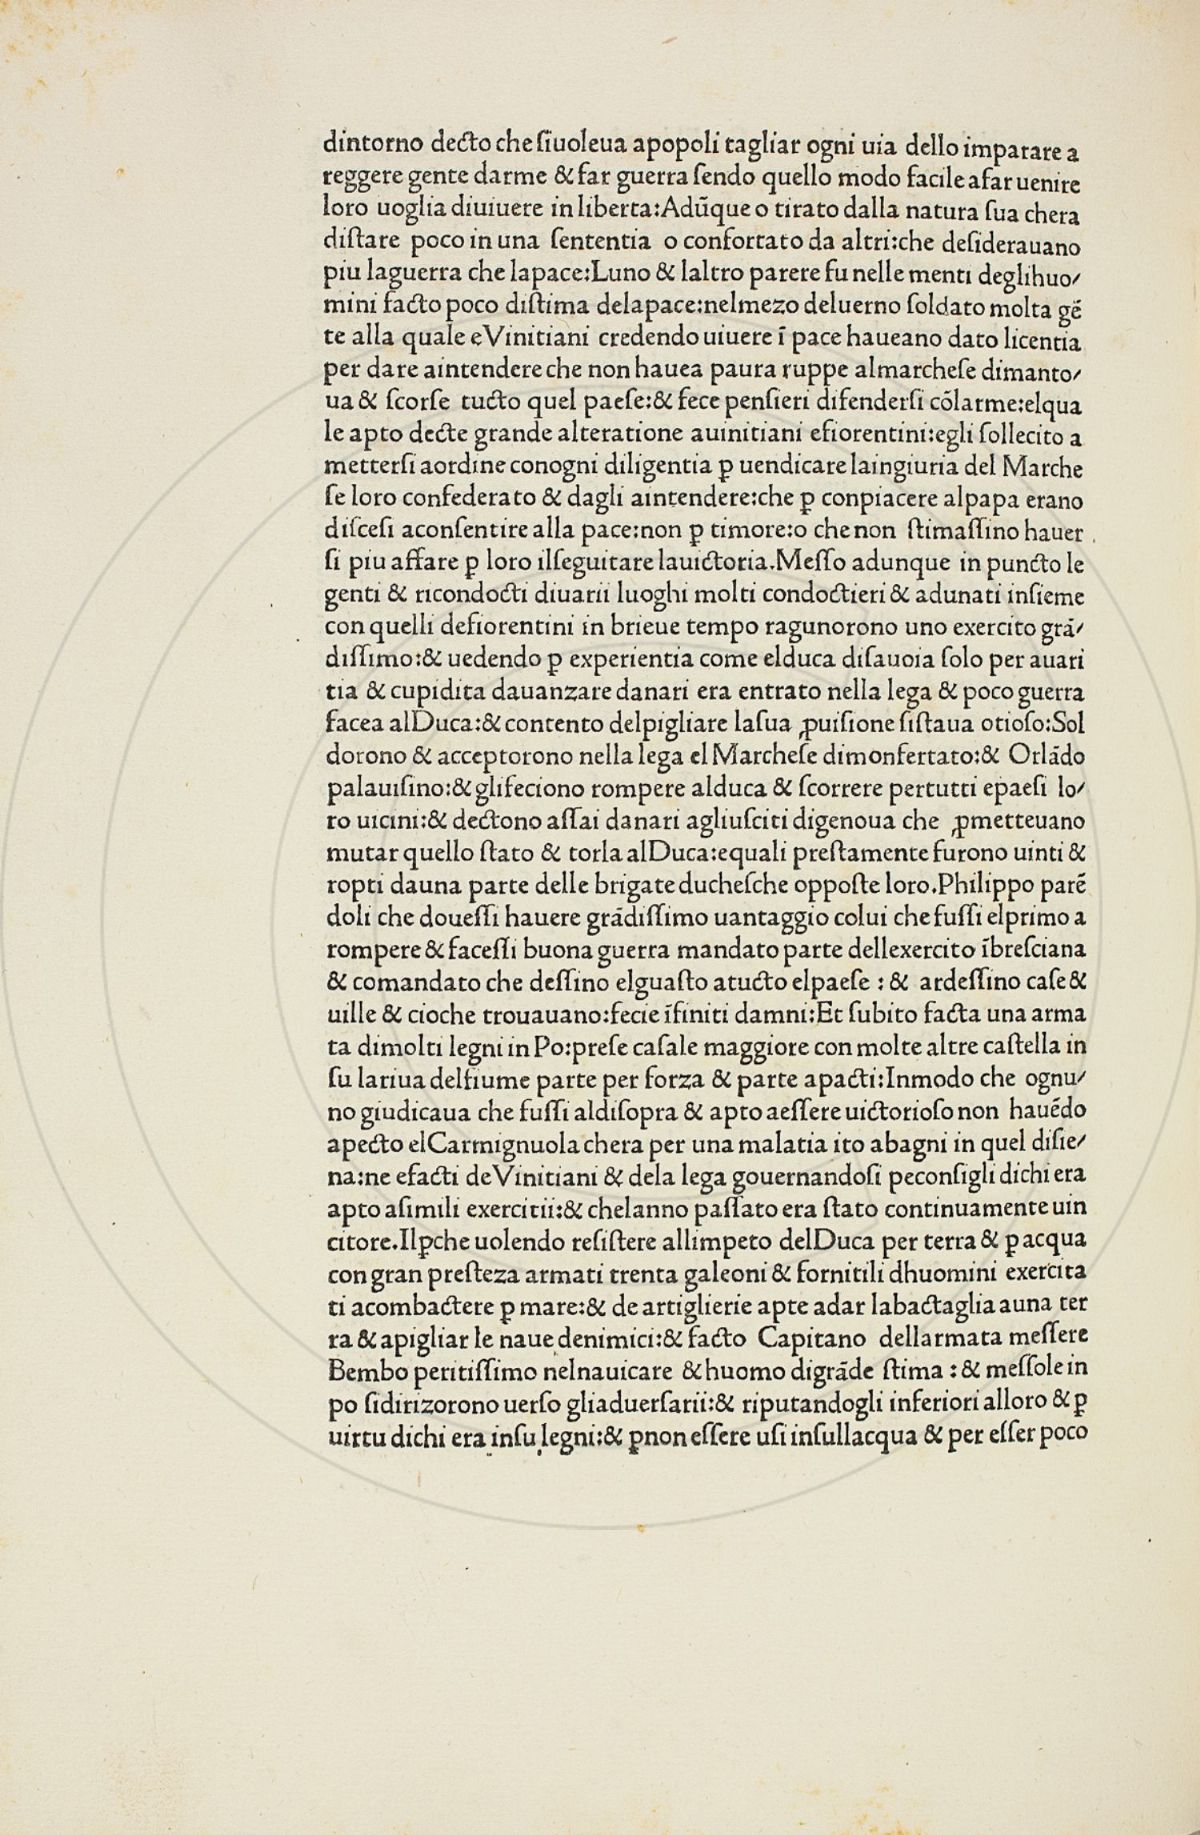 dintorno decto che ſiuoleua apopoli tagliar ogni uia dello imparare a
reggere gente darme & far guerra ſendo quello modo facile afar uenire
loro uoglia diuiuere in liberta:Adūque o tirato dalla natura ſua chera
diſtare poco in una ſententia o confortato da altri:che deſiderauano
piu laguerra che lapace:Luno & laltro parere fu nelle menti deglihuo⸗
mini facto poco diſtima delapace:nelmezo deluerno ſoldato molta gē
te alla quale eVinitiani credendo uiuere ī pace haueano dato licentia
per dare aintendere che non hauea paura ruppe almarcheſe dimanto⸗
ua & ſcorſe tucto quel paeſe:& fece penſieri difenderſi cōlarme:elqua
le apto decte grande alteratione auinitiani efiorentini:egli ſollecito a
metterſi aordine conogni diligentia ꝑ uendicare laingiuria del Marche
ſe loro confederato & dagli aintendere:che ꝑ conpiacere alpapa erano
diſceſi aconſentire alla pace:non ꝑ timore:o che non ſtimaſſino hauer
ſi piu affare ꝑ loro ilſeguitare lauictoria.Meſſo adunque in puncto le
genti & ricondocti diuarii luoghi molti condoctieri & adunati inſieme
con quelli defiorentini in brieue tempo ragunorono uno exercito grā⸗
diſſimo:& uedendo ꝑ experientia come elduca diſauoia ſolo per auari
tia & cupidita dauanzare danari era entrato nella lega & poco guerra
facea alDuca:& contento delpigliare laſua ꝓuiſione ſiſtaua otioſo:Sol
dorono & acceptorono nella lega el Marcheſe dimonfertato:& Orlādo
palauiſino:& glifeciono rompere alduca & ſcorrere pertutti epaeſi lo⸗
ro uicini:& dectono aſſai danari agliuſciti digenoua che ꝓmetteuano
mutar quello ſtato & torla alDuca:equali preſtamente furono uinti &
ropti dauna parte delle brigate ducheſche oppoſte loro.Philippo parē
doli che doueſſi hauere grādiſſimo uantaggio colui che fuſſi elprimo a
rompere & faceſſi buona guerra mandato parte dellexercito ībreſciana
& comandato che deſſino elguaſto atucto elpaeſe : & ardeſſino caſe &
uille & cioche trouauano:fecie īfiniti damni:Et ſubito facta una arma
ta dimolti legni in Po:preſe caſale maggiore con molte altre caſtella in
ſu lariua delfiume parte per forza & parte apacti:Inmodo che ognu⸗
no giudicaua che fuſſi aldiſopra & apto aeſſere uictorioſo non hauēdo
apecto elCarmignuola chera per una malatia ito abagni in quel diſie⸗
na:ne efacti deVinitiani & dela lega gouernandoſi peconſigli dichi era
apto aſimili exercitii:& chelanno paſſato era ſtato continuamente uin
citore.Ilꝑche uolendo reſiſtere allimpeto delDuca per terra & ꝑ acqua
con gran preſteza armati trenta galeoni & fornitili dhuomini exercita
ti acombactere ꝑ mare:& de artiglierie apte adar labactaglia auna ter
ra & apigliar le naue denimici:& facto Capitano dellarmata meſſere
Bembo peritiſſimo nelnauicare & huomo digrāde ſtima : & meſſole in
po ſidirizorono uerſo gliaduerſarii:& riputandogli inferiori alloro & ꝑ
uirtu dichi era inſu legni:& ꝑnon eſſere uſi inſullacqua & per eſſer poco